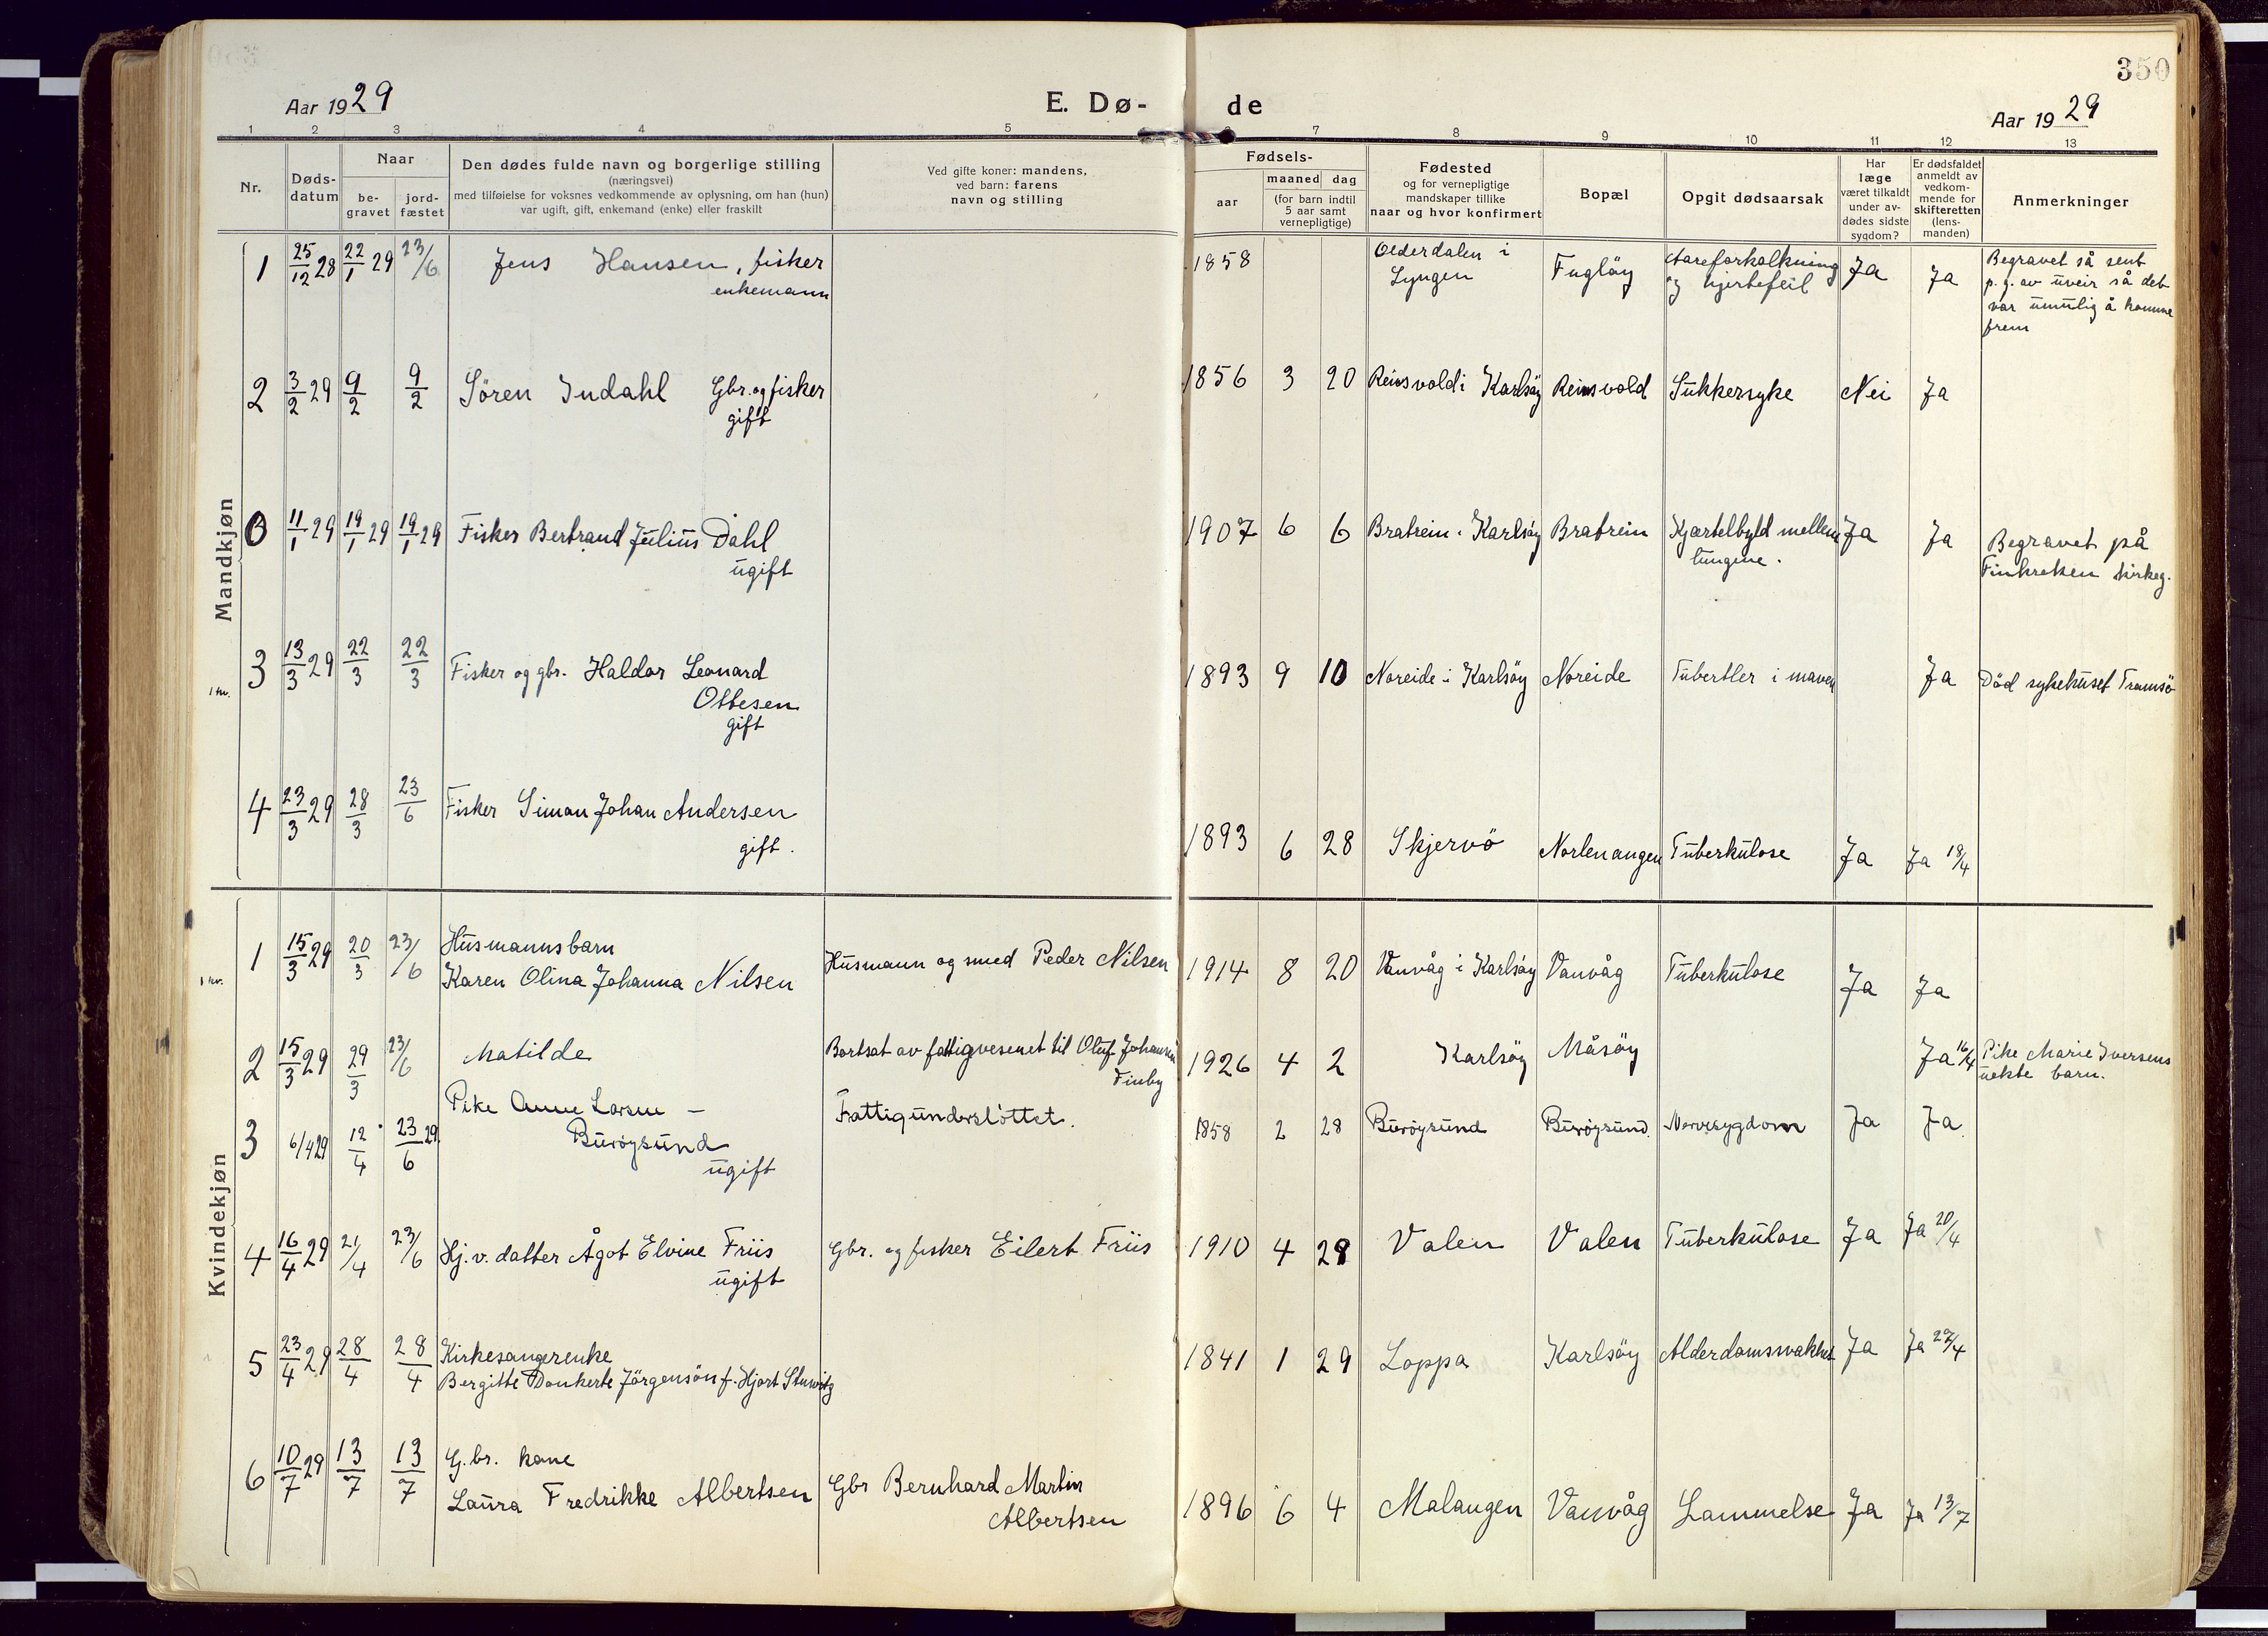 350
Aar 1929
E. Dø-
de
Aar 1929
1 2 3 4 5 6 7 8 9 10 11 12 13
Nr.
Døds-
datum
Naar
be-
gravet
jord-
fæstet
Den dødes fulde navn og borgerlige stilling
(næringsvei)
med tilføielse for voksnes vedkommende av oplysning, om han (hun)
var ugift, gift, enkemand (enke) eller fraskilt
Ved gifte koner: mandens,
ved barn: farens
navn og stilling
Fødsels-
aar
maaned dag
(for barn indtil
5 aar samt
vernepligtige)
Fødested
og for vernepligtige
mandskaper tillike
naar og hvor konfirmert
Bopæl
Opgit dødsaarsak
Har
læge
været tilkaldt
under av-
dødes sidste
sygdom?
Er dødsfaldet
anmeldt av
vedkom-
mende for
skifteretten
(lens-
manden)
Anmerkninger
Mandkjøn
1 25/12 28 22/1 29 23/6 Jens Hansen, fisker
enkemann
1858 Olderdalen i
Lyngen
Fuglöy
Aareforkalkning
og hjertefeil
Ja Ja
Begravet så sent
p. g. av uveir så det
var umulig å komme
frem
2 3/2 29 9/2 9/2 Sören Indahl Gbr. og fisker
gift
1856 3 20 Reinsvold i Karlsöy Reinsvold Sukkersyke Nei Ja
0 11/1 29 19/1 29 19/1 29 Fisker Bertrand Julius Dahl
ugift
1907 6 6 Bratrein i Karlsöy Bratrein Kjærtelbyld mellem
lungene.
Ja Ja
Begravet på
Finkroken kirkeg.
1 kv.
3 13/3 29 22/3 22/3 Fisker og gbr. Haldor Leonard
Ottesen
gift
1893 9 10 Noreide i Karlsöy Noreide Tubertler i maven Ja Död sykehuset Tromsö
4 23/3 29 28/3 23/6 Fisker Simon Johan Andersen
gift.
1893 6 28 Skjervö Norlenangen Tuberkulose Ja Ja 18/4
Kvindekjøn
1 kv.
1 15/3 29 20/3 23/6 Husmannsbarn
Karen Olina Johanna Nilsen
Husmann og smed Peder Nilsen
1914 8 20 Vanvåg i Karlsöy Vanvåg Tuberkulose Ja Ja
2 15/3 29 29/3 23/6 Matilde
Bortsat av fattigvesenet til Oluf Johansen
Finby
1926 4 2 Karlsöy Måsöy Ja 16/4
Pike Marie Iversens
uekte barn.
3 6/4 29 12/4 23/6 29 Pike Anne Larsen –
Buröysund
ugift
Fattigunderstöttet.
1858 2 28 Buröysund Buröysund. Nervesygdom Ja Ja.
4 16/4 29 21/4 23/6 Hj. v. datter Ågot Elvine Friis
ugift
Gbr. og fisker Eilert Friis
1910 4 28 Valen Valen Tuberkulose Ja Ja 20/4
5 23/4 29 28/4 28/4 Kirkesangerenke
Bergitte Donkerte Jörgensön f. Hjort Stuwitz
1841 1 29 Loppa Karlsöy Alderdomsvakhet Ja Ja 27/4
6 10/7 29 13/7 13/7 G.br. kone
Laura Fredrikke Albertsen
Gbr Bernhard Martin
Albertsen
1896 6 4 Malangen Vanvåg Lammelse Ja Ja 13/7